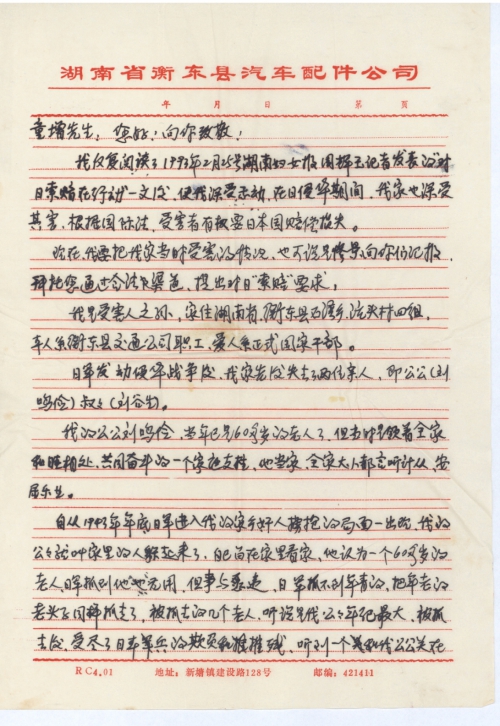 湖南省衡东县汽车配件公司
年 月 日 第 页
童增先生：您好！向你致敬！
我反复阅读了1993年2月25号湖南妇女报周 记者发表的"对
日索赔在行动"一文后，使我深受感动，在日侵华期间，我家也深受
其害，根据国际法，受害者有权要日本国赔偿损失。
现在我要把我家当时受害的情况，也不说只 向你们汇报，
拜托您通过合法渠道，提出对日"索赔"要求。
我是受害人之孙，家住湖南省，衡东县石湾乡 村四组，
本人系衡东县交通公司职工，爱人系正式国家干部。
日军发动侵华战争后，我家先后失去了两位亲人，即公公（刘
鸣俭）叔叔（刘谷生）。
我的公公刘鸣俭，当年已是60多岁的老人了，但当时是领着全家
和睦相处，共同奋斗的一个家庭支柱，他当家，全家大小都言听计从，安
居乐业。
自从1943年年底日军进入我的家乡 人掳抢的局面一出现，我的
公公就叫家里的人躲起来了，自己在家里看家，他认为一个60多岁的
老人，日军抓到他也无用，但事与愿违，日军抓不到年青的，把年老的
老头子同样抓去了，被抓去的几个老人，听说是我公公年纪最大，被抓
去后，受尽了日本军兵的欺凌和摧残，听到一个 和我公公关在
RC4.01 地址：新塘镇建设路128号 邮编：421411